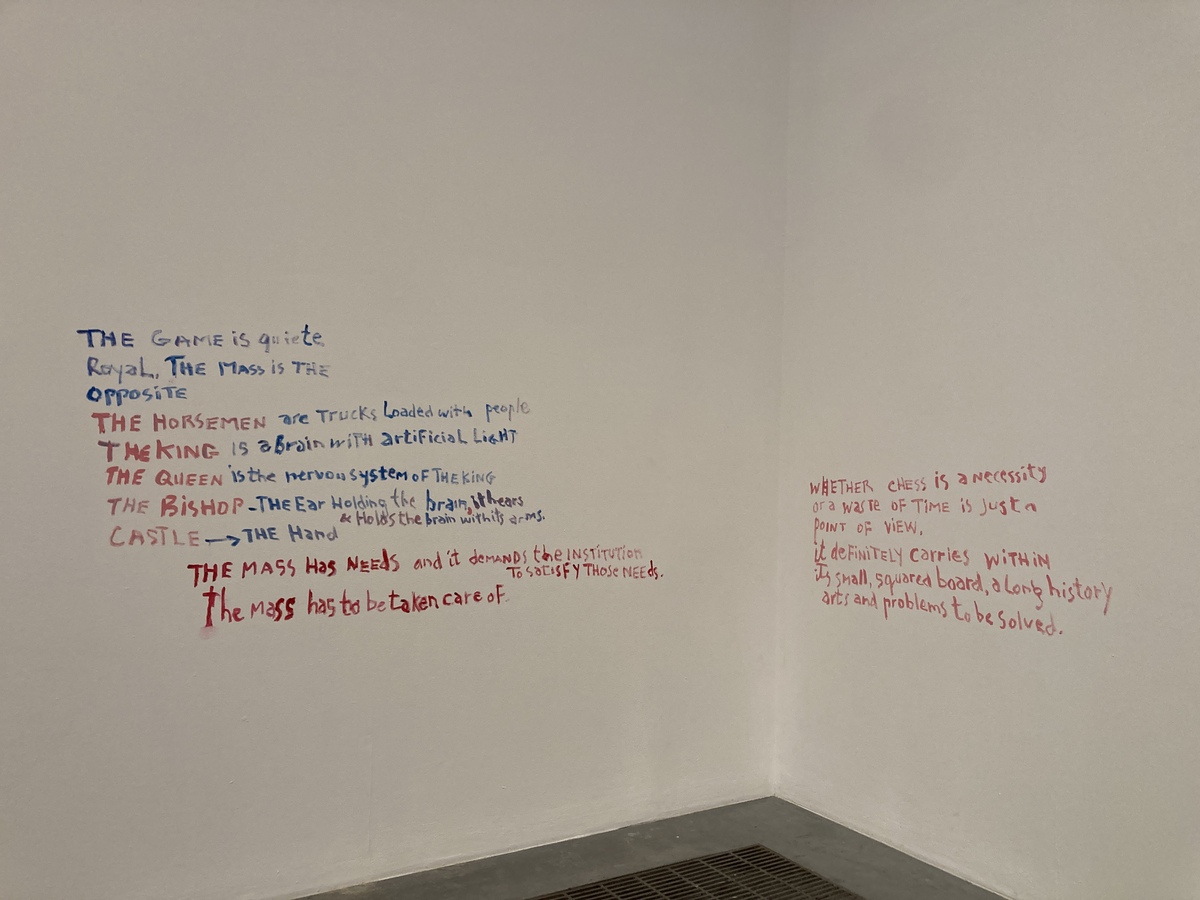 THE GAME is quiete
Royal, THE MASS is THE
OPPOSiTE
THE HORSEMEN are Trucks Loaded with people
THE KING is a Brain with artificial LigHT
THE QUEEN is the nervous system oF THE KING
THE BiSHOP - THE Ear Holding the brain, it hears
& Holds the brain with its arms.
CASTLE → THE Hand
THE MASS Has NEEDS and it demands the INSTiTUTiON
To satisFY THOSE NEEDs.
The Mass has to be taken care oF.
WHETHER CHESS is a necessity
or a waste of Time is just a
Point of View,
it definitely carries within
its small, squared board, a Long history
arts and problems to be solved.